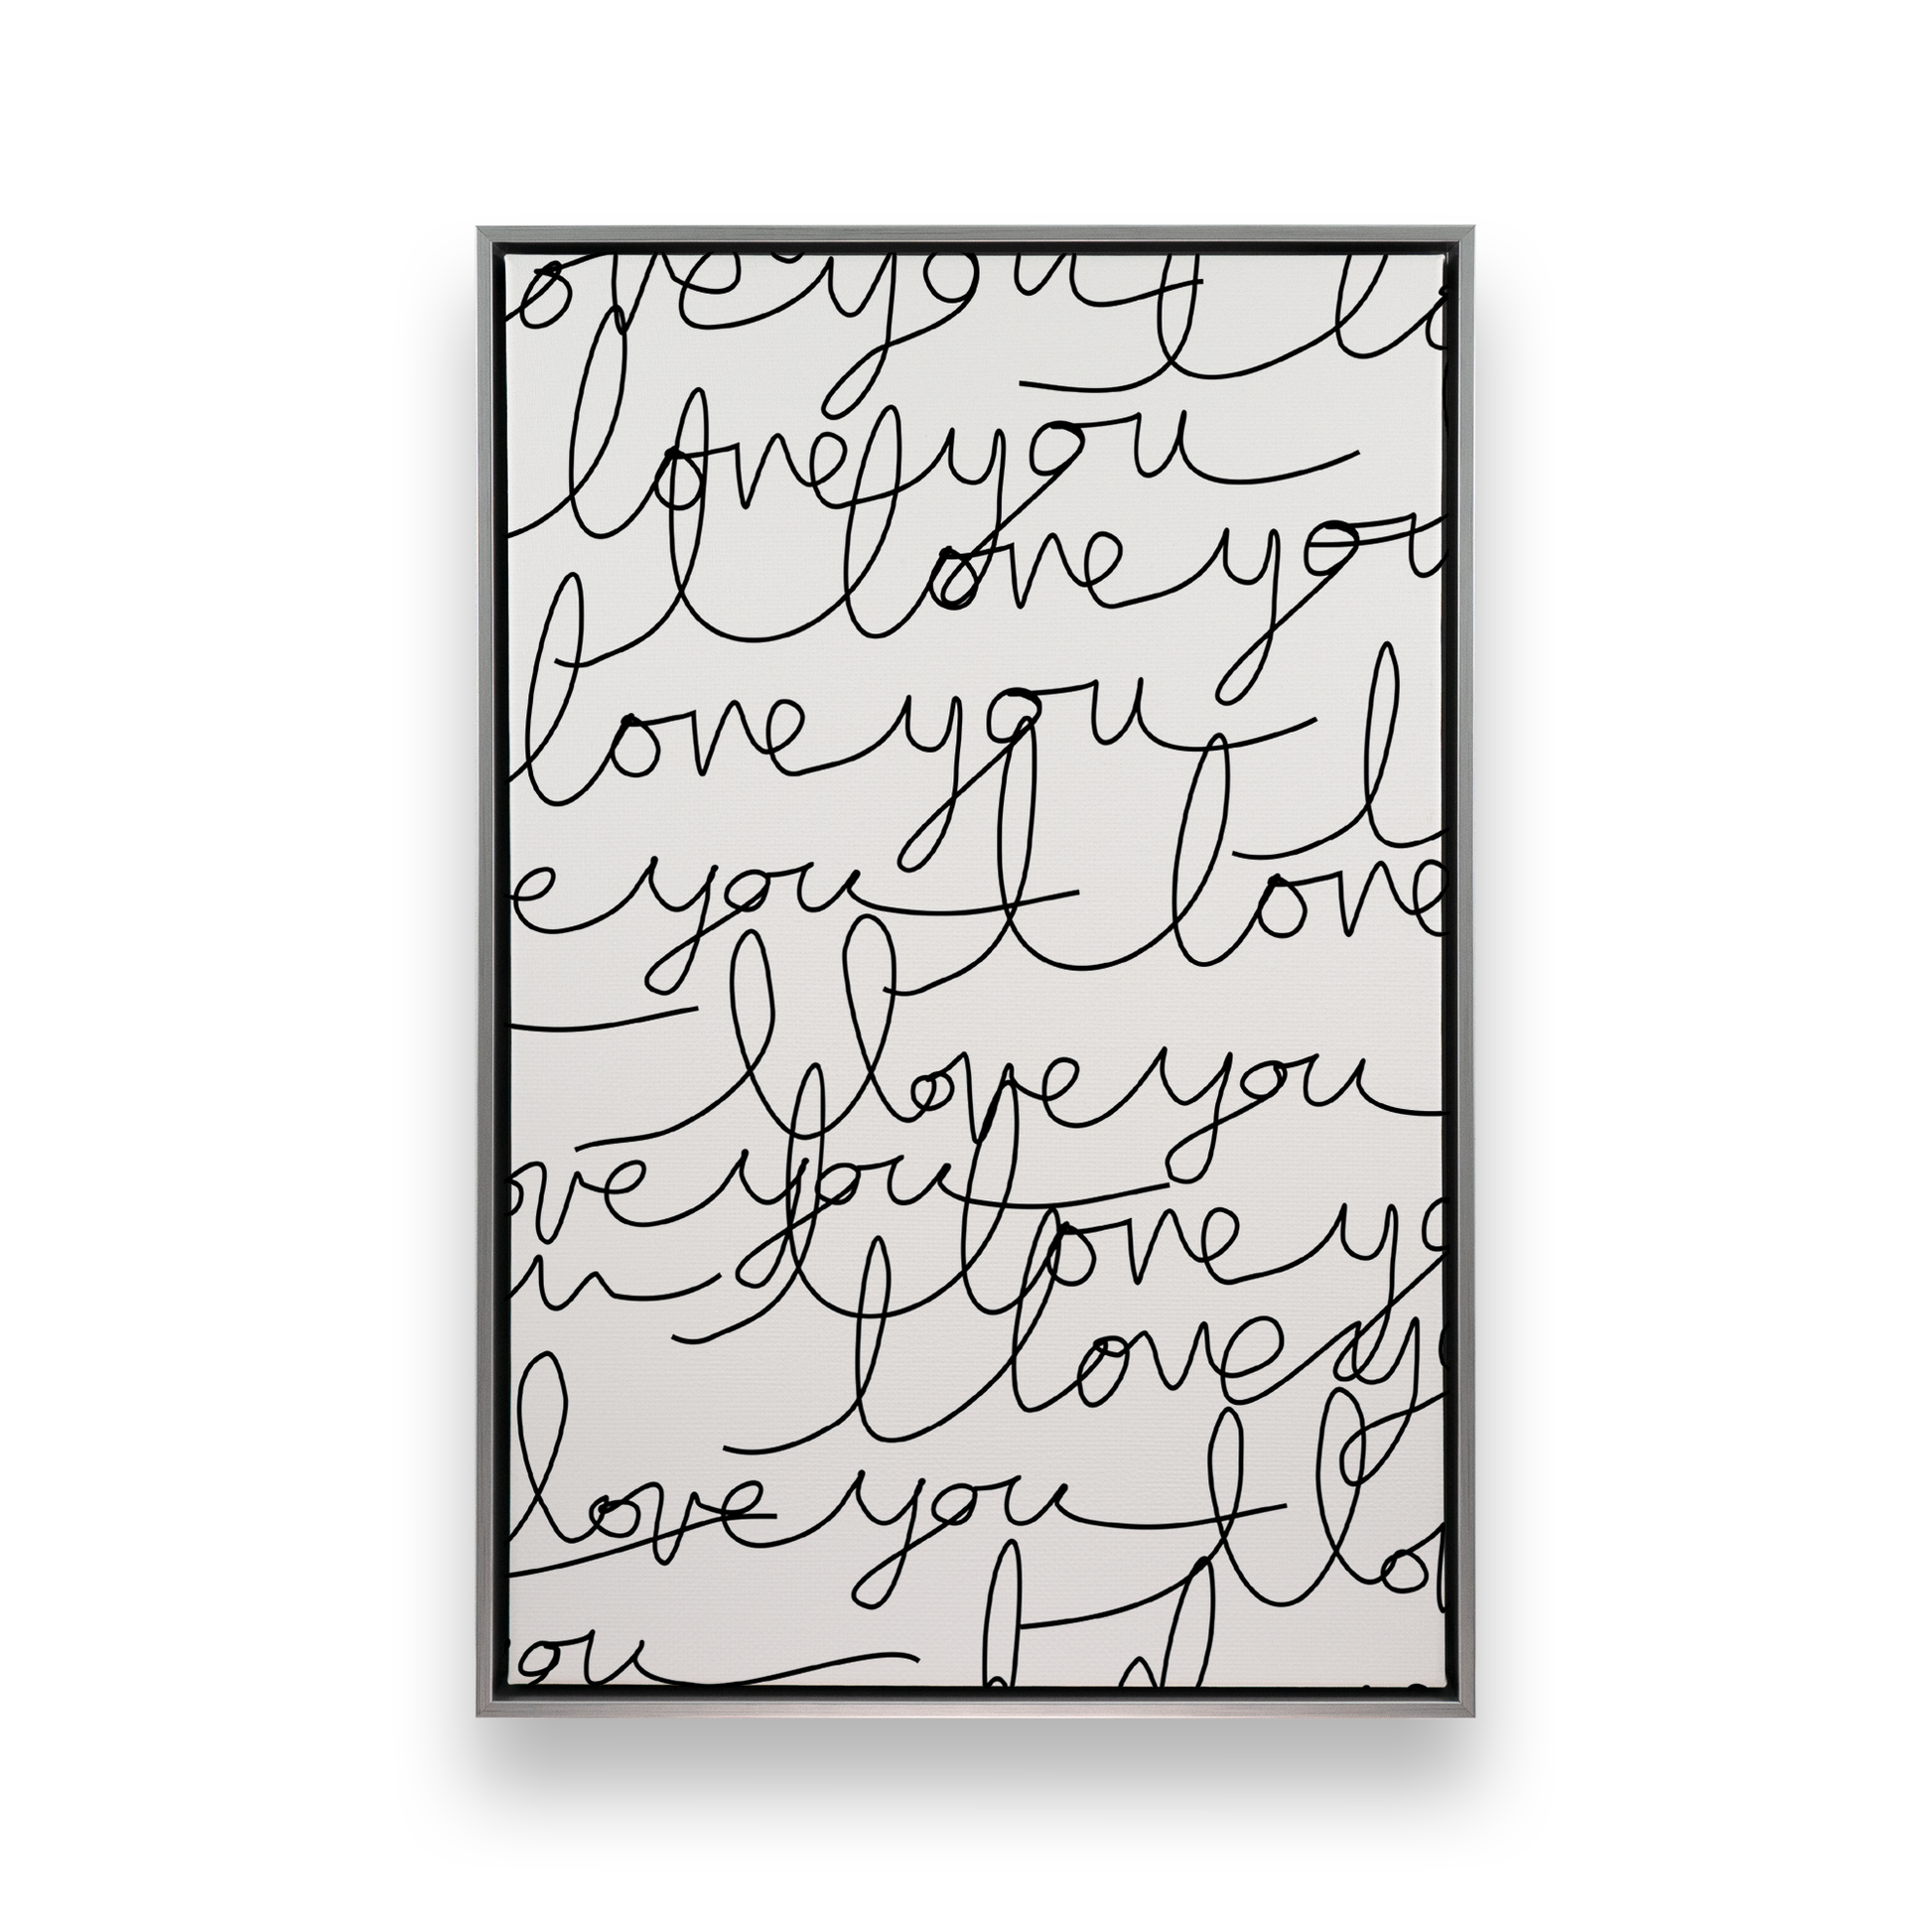 love you I lo
I love you
I love you
love you I
e you I love
I love you
ove you I love yo
u I love y
I love you I lo
ou I